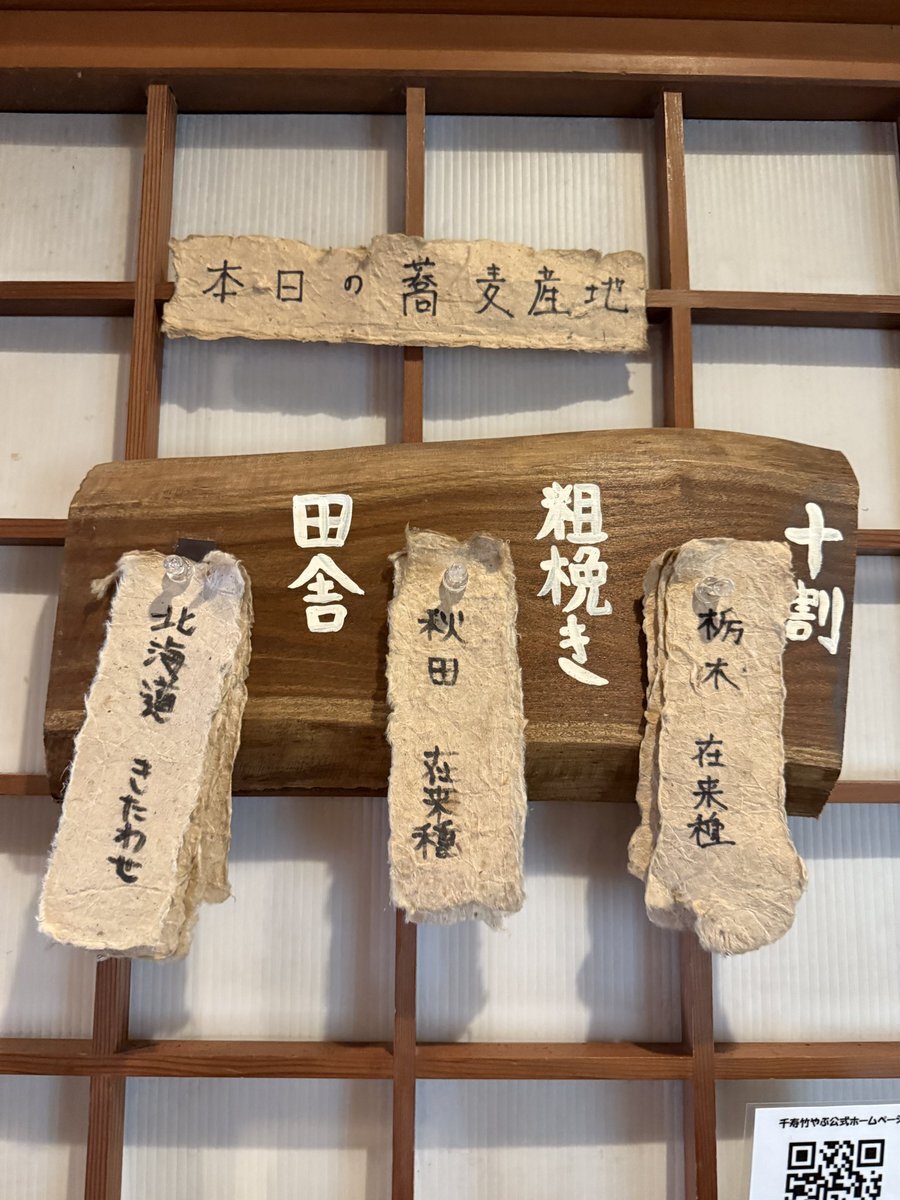 本日の蕎麦産地
十割
栃木 在来種
粗挽き
秋田 在来種
田舎
北海道 きたわせ
千寿竹やぶ公式ホームペー